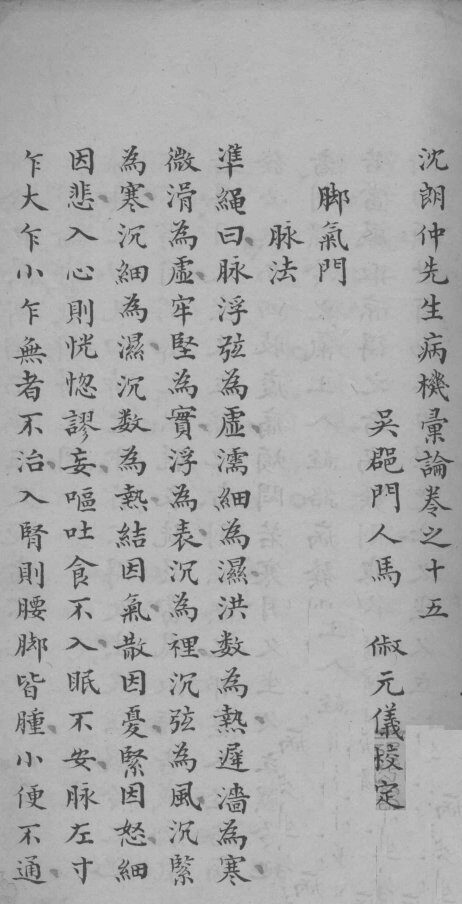 沈朗仲先生病機彙論卷之十五
吳郡門人馬俶元儀校定
脚氣門
脉法
準繩曰脉浮弦為虛濡細為濕洪数為熱遲濇為寒
微滑為虛牢堅為實浮為表沉為裡沉弦為風沉緊
為寒沉細為濕沉数為熱結因氣散因憂緊因怒細
因悲入心則恍惚謬妄嘔吐食不入眠不安脉左寸
乍大乍小乍無者不治入腎則腰脚皆腫小便不通